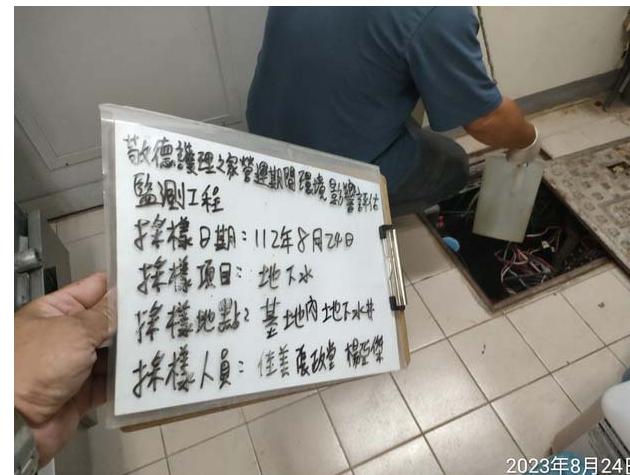 敬德護理之家營運期間環境影響評估
監測工程
採樣日期：112年8月24日
採樣項目：地下水
採樣地點：基地內地下水井
採樣人員：佳美 張政堂 楊亞傑
2023年8月24日